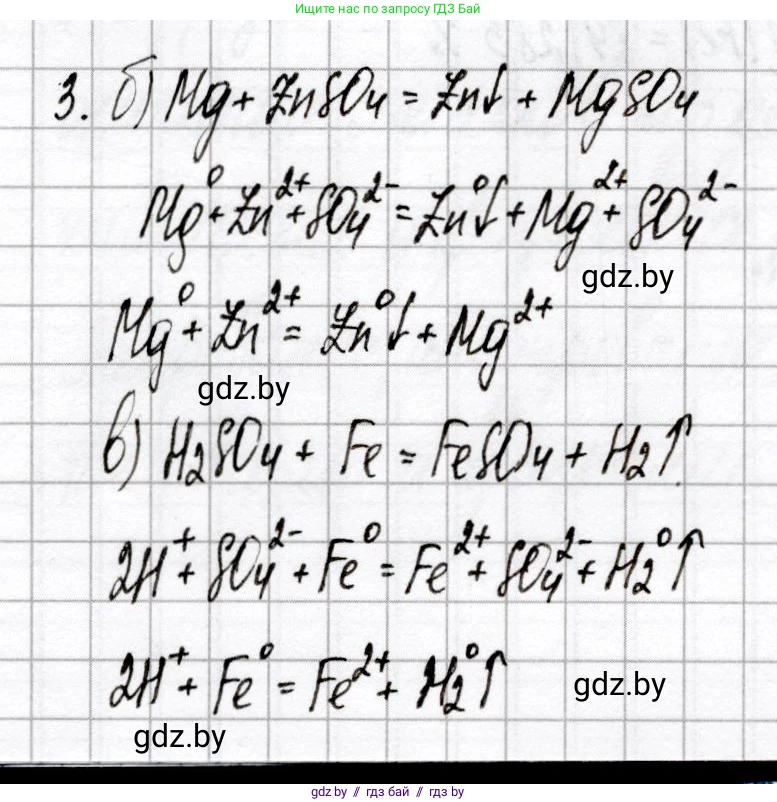 Ищите нас по запросу ГДЗ БАЙ
3. б) Mg + ZnSO₄ = Zn↓ + MgSO₄
Mg⁰ + Zn²⁺ + SO₄²⁻ = Zn⁰↓ + Mg²⁺ + SO₄²⁻
gdz.by
Mg⁰ + Zn²⁺ = Zn⁰↓ + Mg²⁺
gdz.by
в) H₂SO₄ + Fe = FeSO₄ + H₂↑
2H⁺ + SO₄²⁻ + Fe⁰ = Fe²⁺ + SO₄²⁻ + H₂⁰↑
2H⁺ + Fe⁰ = Fe²⁺ + H₂⁰↑
gdz.by
gdz.by
gdz.by // гдз бай // гдз by